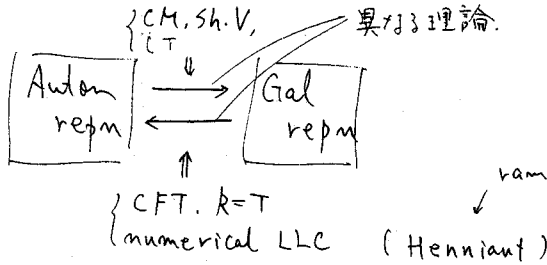 CM, Sh. V,
CT
異なる理論.
Autom
repn
Gal
repn
CFT. R=T
numerical LLC (Henniart)
ram